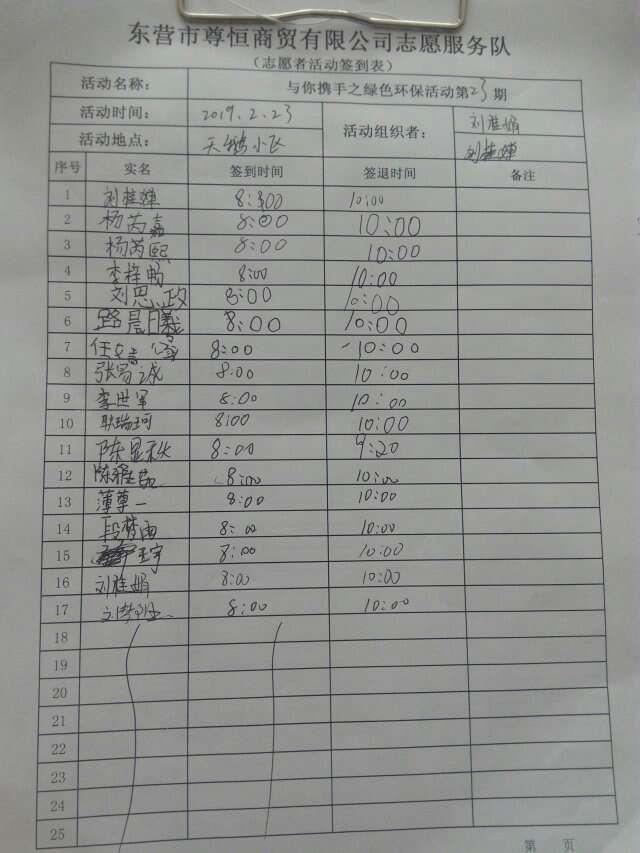 东营市尊恒商贸有限公司志愿服务队
（志愿者活动签到表）
活动名称： 与你携手之绿色环保活动第23期
活动时间： 2019.2.23 活动组织者： 刘桂娟
活动地点： 天鹅小区 刘桂婵
序号 实名 签到时间 签退时间 备注
1 刘桂婵 8:00 10:00
2 杨芮嘉 8:00 10:00
3 杨芮熙 8:00 10:00
4 李梓畅 8:00 10:00
5 刘思政 8:00 10:00
6 路晨曦 8:00 10:00
7 任 8:00 10:00
8 张 诚 8:00 10:00
9 李世军 8:00 10:00
10 耿瑞珂 8:00 10:00
11 陈显秋 8:00 9:20
12 陈 8:00 10:00
13 薄尊一 8:00 10:00
14 段梦雨 8:00 10:00
15 王宇 8:00 10:00
16 刘桂娟 8:00 10:00
17 8:00 10:00
18
19
20
21
22
23
24
25
第 页